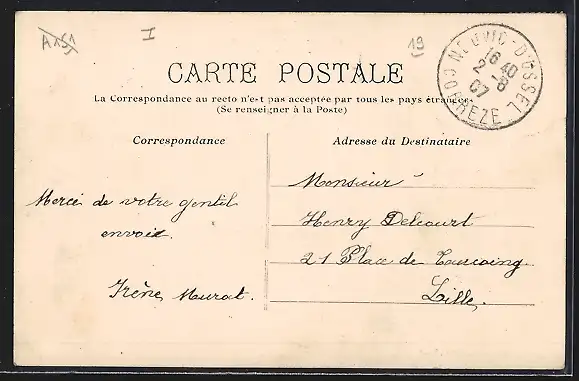 A151
I
19
NEUVIC-D'USSEL
16 40
2 -8
07
CORREZE
CARTE POSTALE
La Correspondance au recto n'est pas acceptée par tous les pays étrangers
(Se renseigner à la Poste)
Correspondance
Adresse du Destinataire
Merci de votre gentil
envoi.
Irène Murat.
Monsieur
Henry Delcourt
21 Place de Tourcoing
Lille.